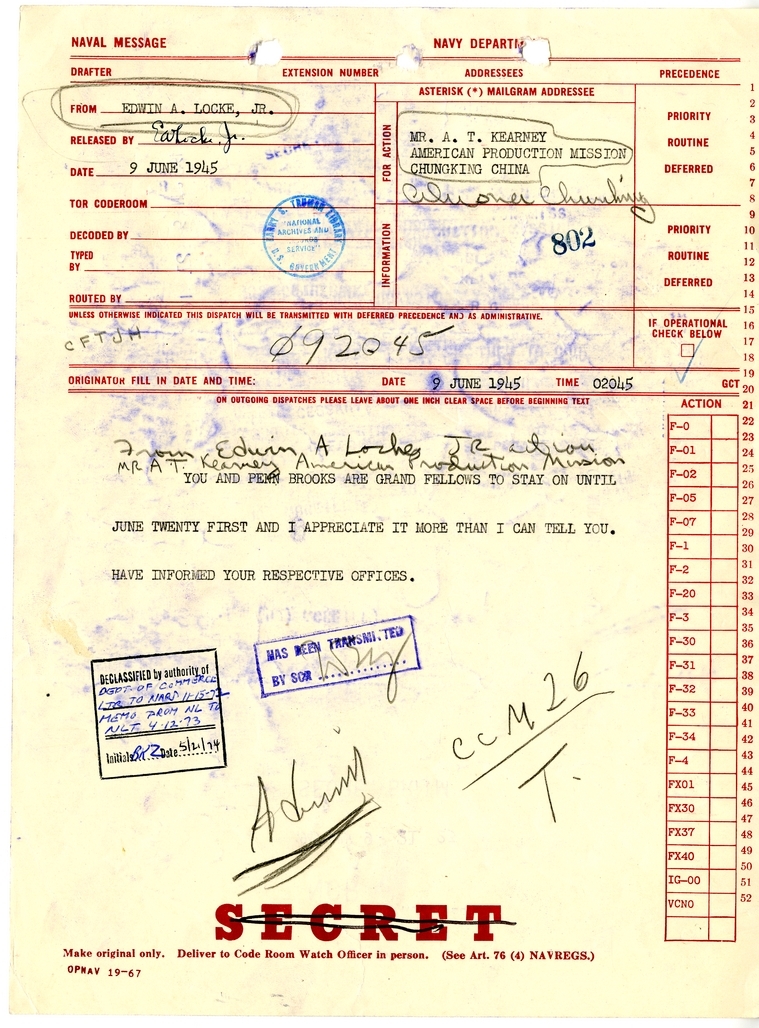 NAVAL MESSAGE NAVY DEPARTM
DRAFTER EXTENSION NUMBER ADDRESSEES PRECEDENCE
FROM EDWIN A. LOCKE, JR.
RELEASED BY EALocke, Jr.
DATE 9 JUNE 1945
TOR CODEROOM
DECODED BY
TYPED
BY
ROUTED BY
HARRY S. TRUMAN LIBRARY
NATIONAL
ARCHIVES AND
SERVICE
U.S. GOVERNMENT
SECRET
ASTERISK (*) MAILGRAM ADDRESSEE
FOR ACTION
MR. A. T. KEARNEY
AMERICAN PRODUCTION MISSION
CHUNGKING CHINA
Chungking
INFORMATION
802
PRIORITY
ROUTINE
DEFERRED
PRIORITY
ROUTINE
DEFERRED
UNLESS OTHERWISE INDICATED THIS DISPATCH WILL BE TRANSMITTED WITH DEFERRED PRECEDENCE AND AS ADMINISTRATIVE.
CFTJH
092045
IF OPERATIONAL
CHECK BELOW
ORIGINATOR FILL IN DATE AND TIME: DATE 9 JUNE 1945 TIME 02045 GCT
ON OUTGOING DISPATCHES PLEASE LEAVE ABOUT ONE INCH CLEAR SPACE BEFORE BEGINNING TEXT
From Edwin A Locke, JR action
MR A T. Kearney American Production Mission
YOU AND PENN BROOKS ARE GRAND FELLOWS TO STAY ON UNTIL
JUNE TWENTY FIRST AND I APPRECIATE IT MORE THAN I CAN TELL YOU.
HAVE INFORMED YOUR RESPECTIVE OFFICES.
HAS BEEN TRANSMITTED
BY SCR
DECLASSIFIED by authority of
DEPT OF COMMERCE
LTR TO NARS 11-15-72
MEMO FROM NL TO
NLT 4-12-73
Initials Date 5/21/74
CCM 26
T.
Admin
SECRET
Make original only. Deliver to Code Room Watch Officer in person. (See Art. 76 (4) NAVREGS.)
OPNAV 19-67
ACTION
F-0
F-01
F-02
F-05
F-07
F-1
F-2
F-20
F-3
F-30
F-31
F-32
F-33
F-34
F-4
FX01
FX30
FX37
FX40
IG-00
VCNO
1
2
3
4
5
6
7
8
9
10
11
12
13
14
15
16
17
18
19
20
21
22
23
24
25
26
27
28
29
30
31
32
33
34
35
36
37
38
39
40
41
42
43
44
45
46
47
48
49
50
51
52